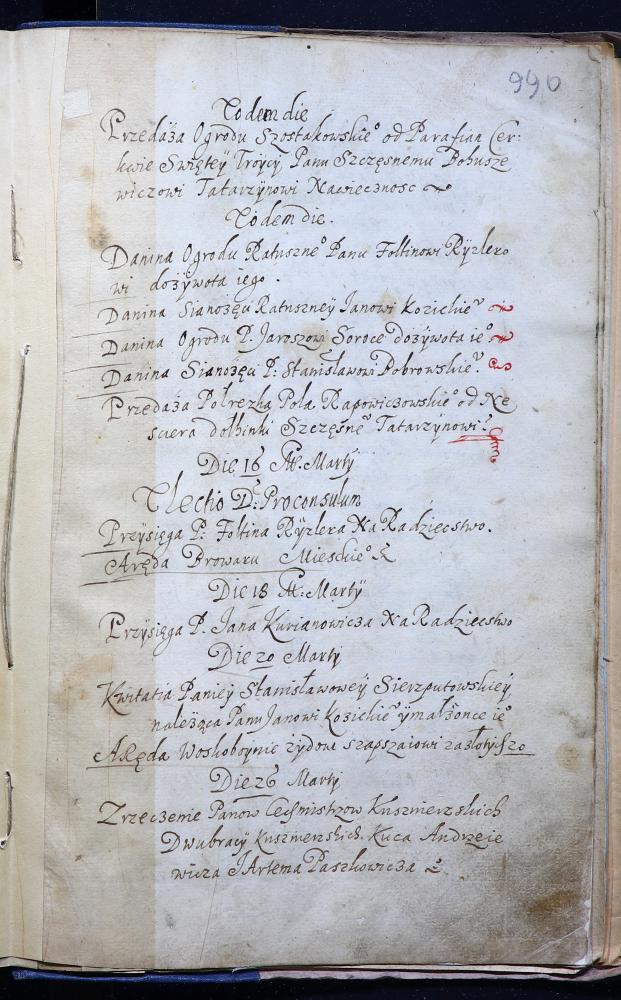 990
Eodem die
Przedáża Ogrodu Szostakowskieº od Parafian Cer:
kwie Swiętey Troycy Panu Szczęsnemu Bohusze
wiczowi Tatarzynowi Nawiecznosc
Eodem die.
Danina Ogrodu Ratuszneº Panu Foltinowi Ryzlero
wi dożywota iego.
Danina Sianożęci Ratuszney Janowi Kozickieº
Danina Ogrodu P. Jaroszowi Soroce dożywota ieº
Danina Sianożęci P: Stanisławowi Dobrowskieº.
Przedáża Połrezka Pola Rapowiczowskieº od Ne
sciera dołhinki Szczęsneº Tatarzynowi
Die 16 M. Martÿ
Electio D. Proconsulum
Przysięga P: Foltina Ryzlera Na Radziectwo.
Aręda Browaru Mieskieº
Die 18 M: Martÿ
Przysięga P. Jana Kurianowicza Na Radziectwo
Die 20 Martÿ
Kwitatia Paniey Stanisławowey Sierzputowskiey
należąca Panu Janowi Kozickieº ÿ małżonce ieº
Aręda Woskoboynie żydowi szapszaiowi za złotych 20
Die 26 Martÿ
Zrzeczenie Panow Cechmistrzow Kusznierskich
Dwubracÿ Kusznierskich Kuca Andrzeie
wicza J Artema Paszkowicza